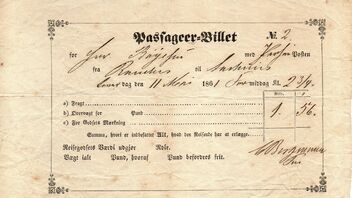 Passageer-Billet № 2
for Herr med Person Posten
fra Randers til Aarhuus
Løverdag den 11 Mai 1861 Formiddag Kl. 2 3/4.
a) Fragt
b) Overvægt for Pund 1. 56.
c) For Godsets Mærkning
Summa, hvori er indbefattet Alt, hvad den Reisende har at erlægge.
Reisegodsets Værdi udgjør Rdlr.
Vægt ialt Pund, hvoraf Pund befordres frit.